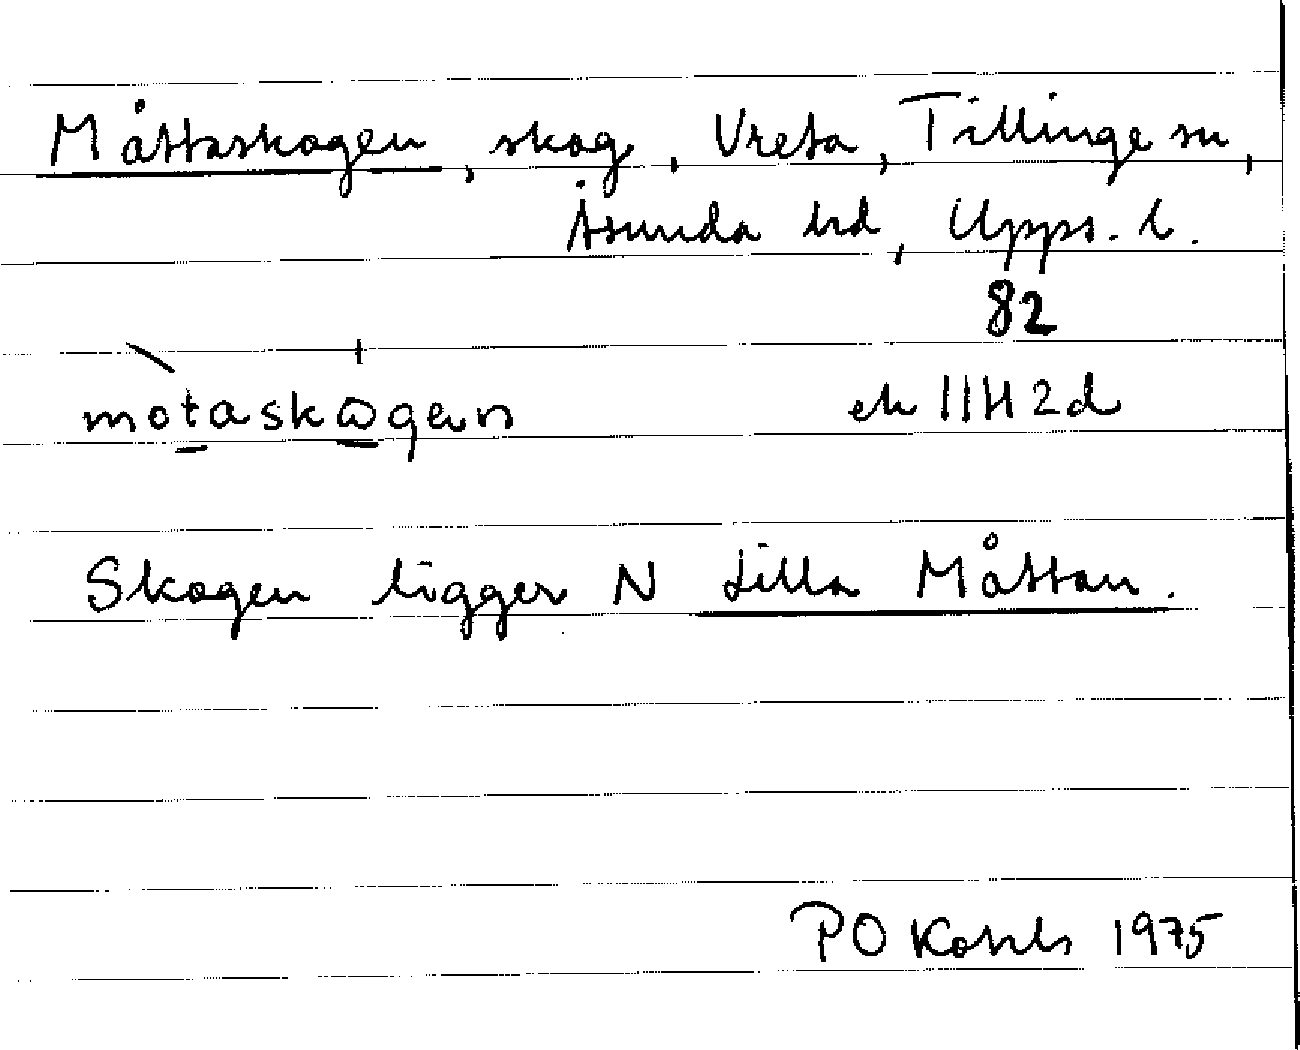 Måttaskogen, skog, Vreta, Tillinge sn,
Åsunda hd, Upps. l.
82
mòtaskωgen ek 11H2d
Skogen ligger N Lilla Måttan.
PO 1975